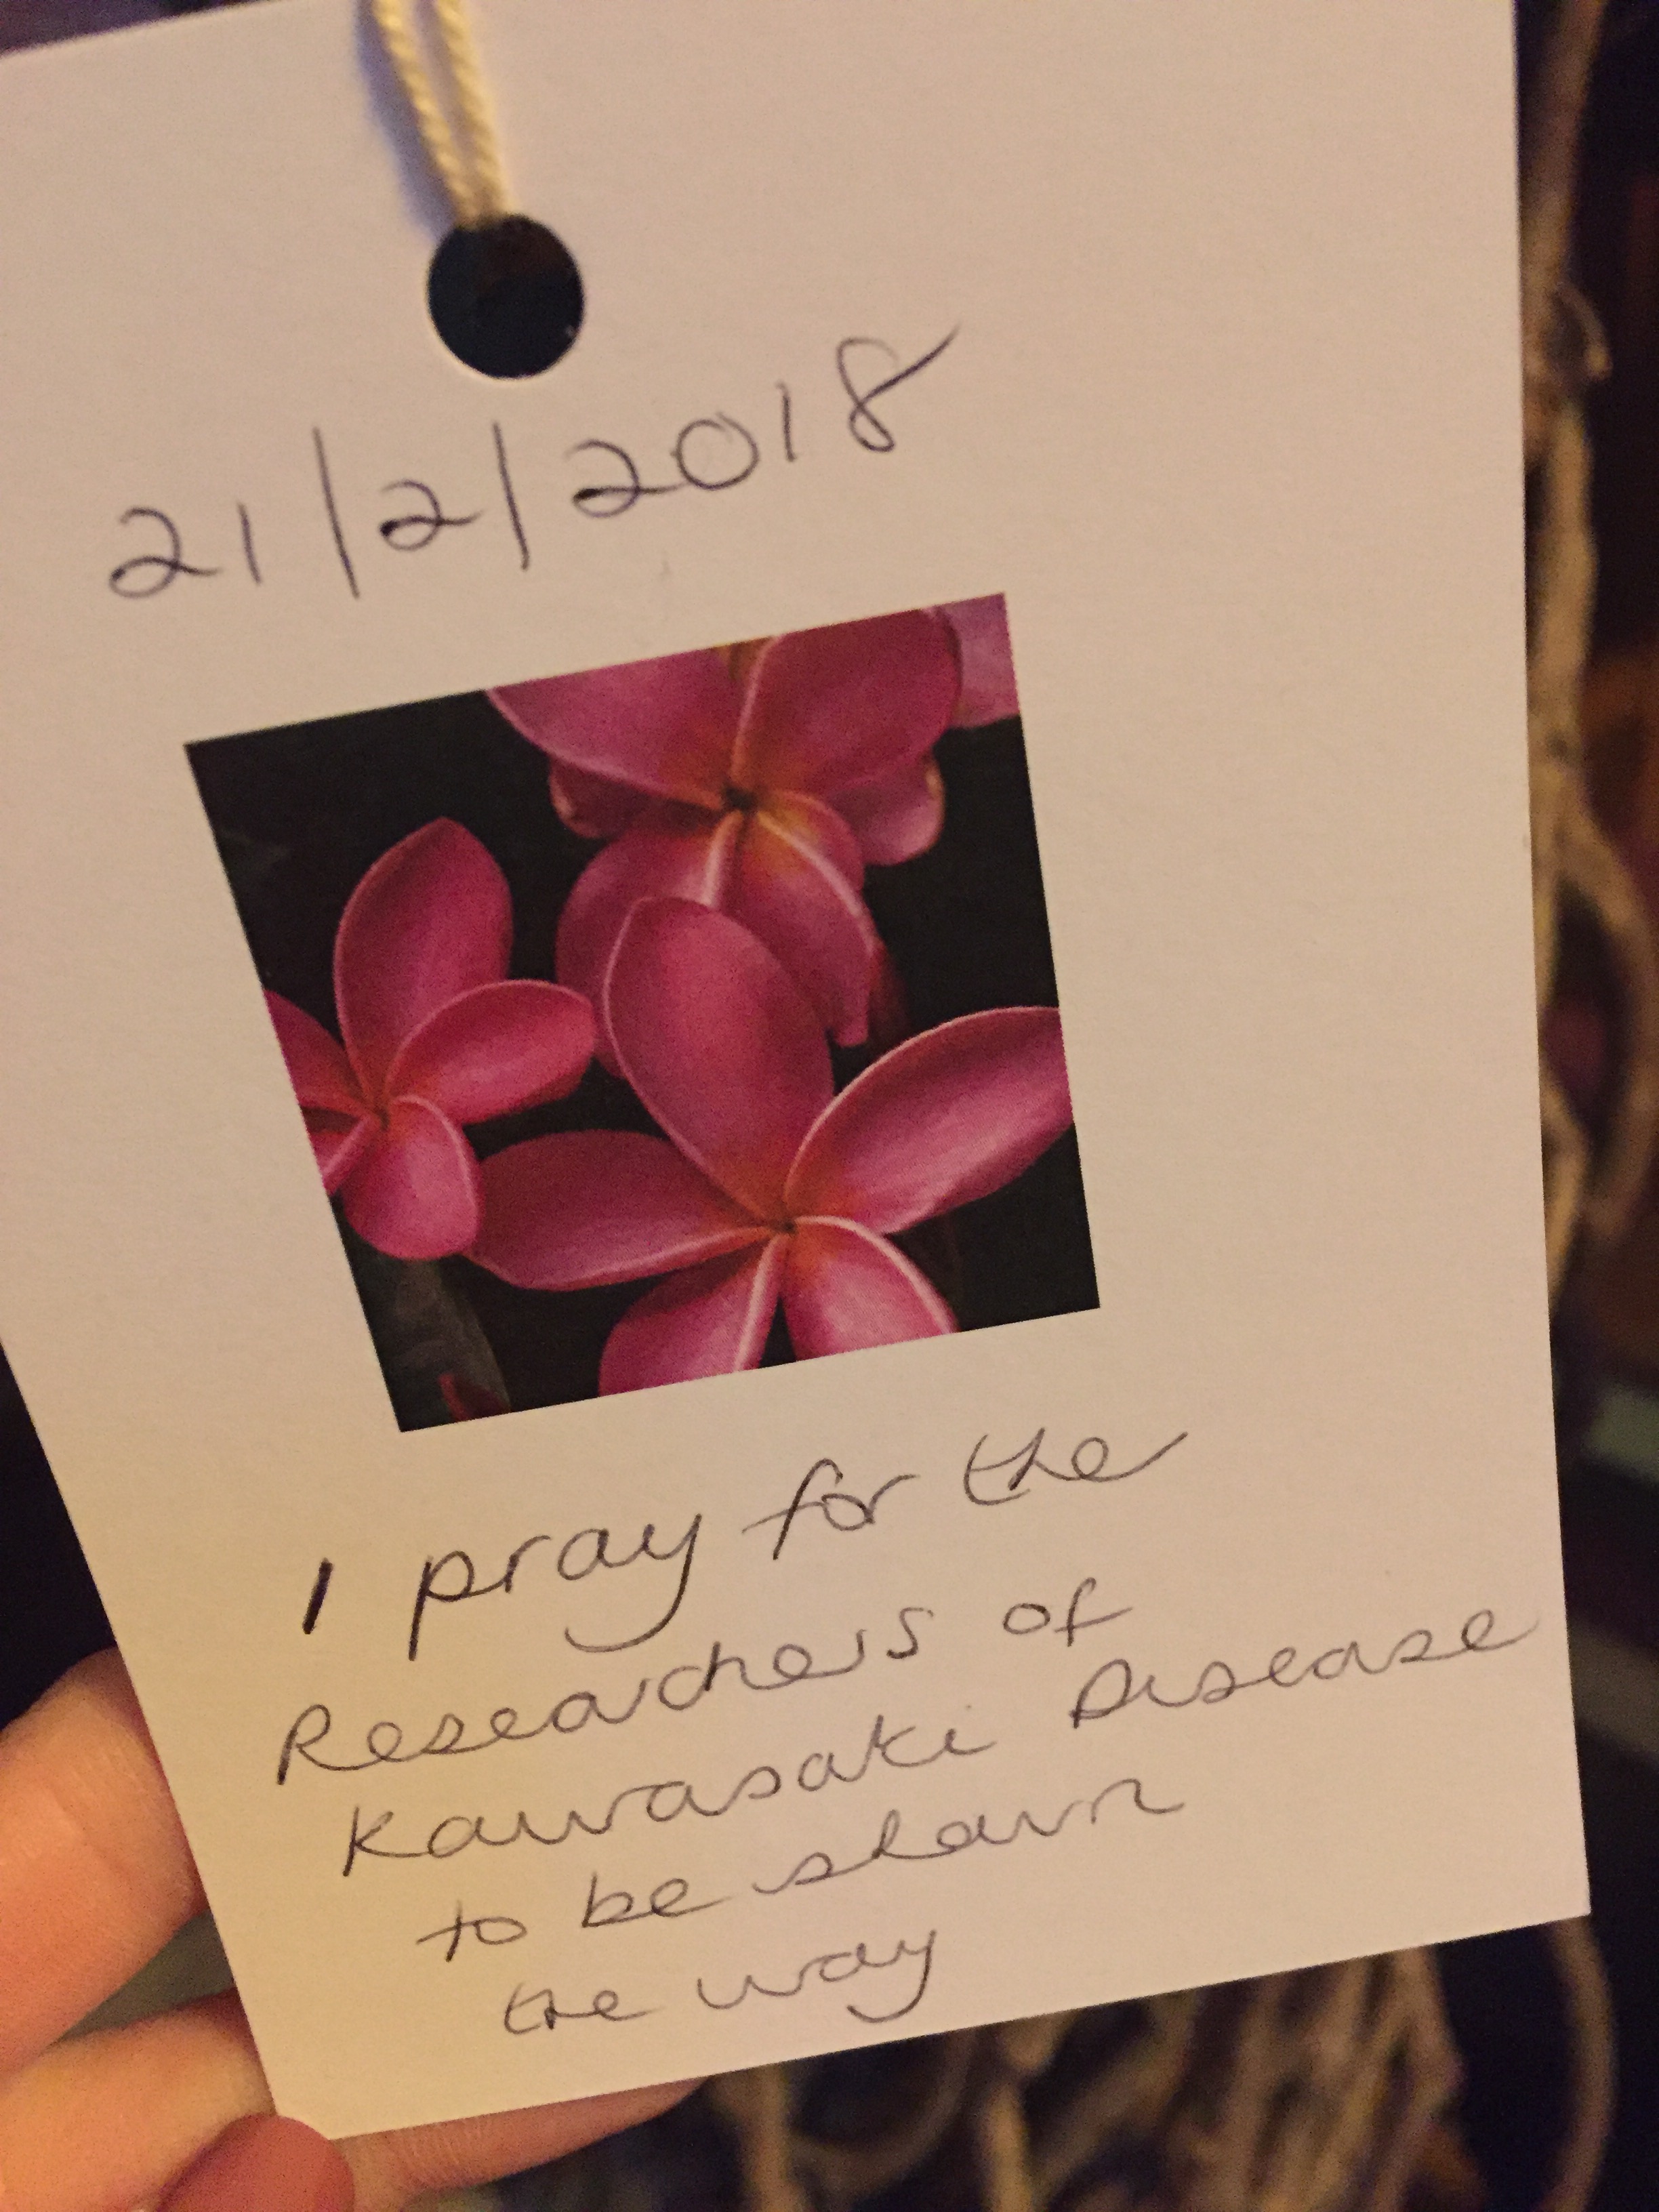 21/2/2018
I pray for the
Researchers of
Kawasaki Disease
to be shown
the way